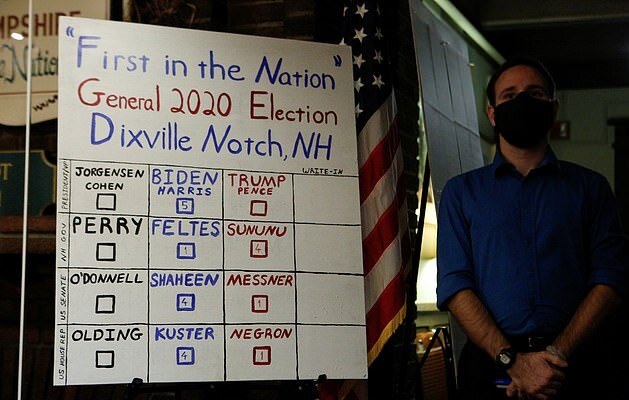 MPSHIRE
"First in the Nation"
General 2020 Election
Dixville Notch, NH
PRESIDENT/VP
JORGENSEN
COHEN
BIDEN
HARRIS
5
TRUMP
PENCE
WRITE-IN
NH GOV
PERRY
FELTES
1
SUNUNU
4
US SENATE
O'DONNELL
SHAHEEN
4
MESSNER
1
US HOUSE REP
OLDING
KUSTER
4
NEGRON
1